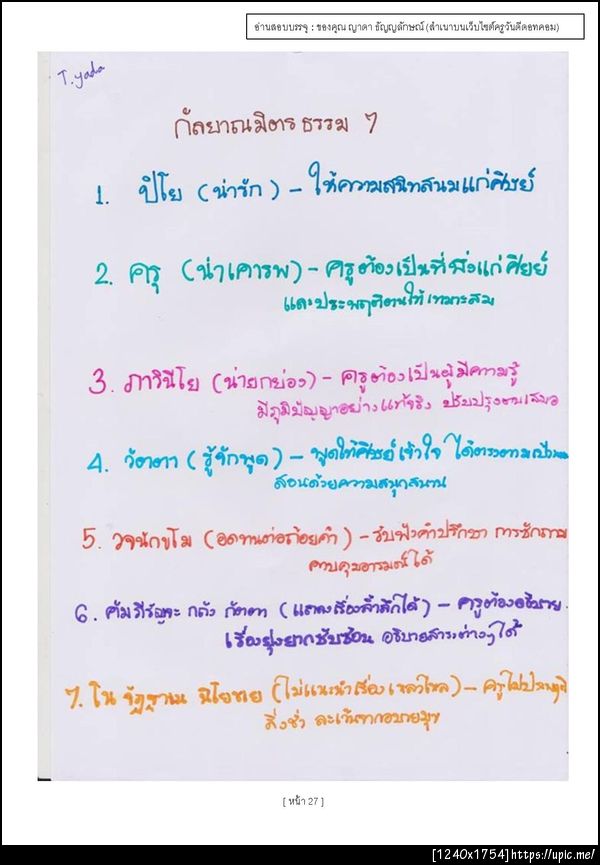 อ่านสอบบรรจุ : ของคุณ ญาดา ธัญญลักษณ์ (สำเนาบนเว็บไซต์ครูวันดีดอทคอม)
T.yada
กัลยาณมิตรธรรม 7
1. ปิโย (น่ารัก) - ให้ความสนิทสนมแก่ศิษย์
2. ครุ (น่าเคารพ) - ครูต้องเป็นที่พึ่งแก่ศิษย์
และประพฤติตนให้เหมาะสม
3. ภาวนีโย (น่ายกย่อง) - ครูต้องเป็นผู้มีความรู้
มีภูมิปัญญาอย่างแท้จริง ปรับปรุงตนเสมอ
4. วัตตา (รู้จักพูด) - พูดให้ศิษย์เข้าใจ ได้ตรงตาม
สอนด้วยความสนุกสนาน
5. วจนักขโม (อดทนต่อถ้อยคำ) - รับฟังคำปรึกษา การซักถาม
ควบคุมอารมณ์ได้
6. คัมภีรัญจะ กถัง กัตตา (แสดงเรื่องล้ำลึกได้) - ครูต้องอธิบาย
เรื่องยุ่งยากซับซ้อน อธิบายสาระต่างๆได้
7. โน จัฏฐาเน นิโยชเย (ไม่แนะนำเรื่องเหลวไหล) - ครูไม่ประพฤติ
สิ่งชั่ว ละเว้นจากอบายมุข
[ หน้า 27 ]
[1240x1754]https://upic.me/